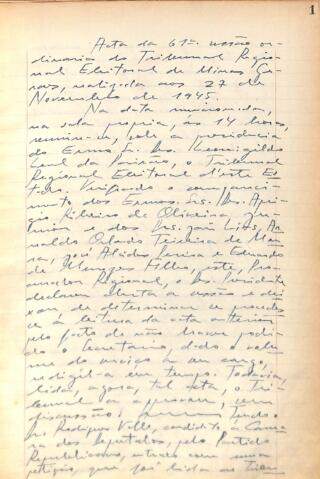 1
Acta da 61ª. sessão or-
dinaria do Tribunal Regio-
nal Eleitoral de Minas Ge-
raes, realizada aos 27 de
Novembro de 1945.
Na data mencionada,
na sala propria, ás 14 horas,
reuniu-se, sob a presidencia
do Exmo. Sr. Des. Leovigildo
Leal da Paixão, o Tribunal
Regional Eleitoral d'este Es-
tado. Verificado o compareci-
mento dos Exmos. Srs. Des. Apri-
gio Ribeiro de Oliveira Ju-
nior e dos Srs. João Lins, Ar-
naldo Orlando Teixeira de Mou-
ra, José Alcides Pereira e Eduardo
de Menezes Filho, este, Pro-
curador Regional, o Des. Presidente
declarou aberta a sessão e dei-
xou de determinar se proceda-
se á leitura da acta anterior
pelo facto de não haver podi-
do o Secretario, dado o volu-
me do serviço a seu cargo,
redigil-a em tempo. Todavia,
lida, agora, tal acta, o Tri-
bunal a approvou, sem
discussão. Tendo
Rodrigues Valle, candidato á Cama-
ra dos Deputados, pelo Partido
Republicano, entrado com uma
petição, que foi lida ao Tribu-